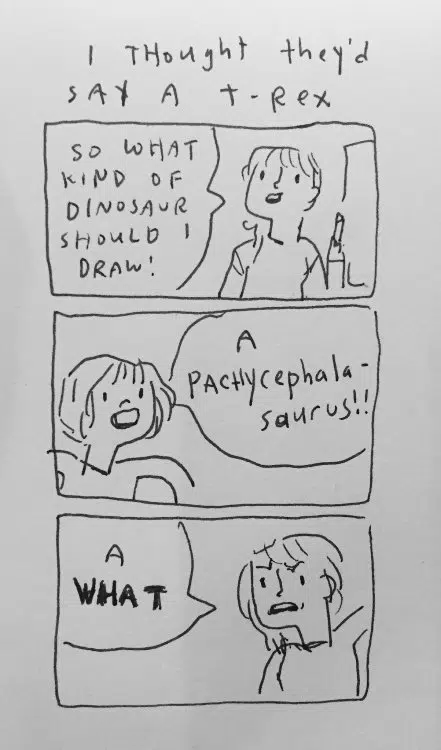 I THOUGHT they'd
SAY A T-Rex
SO WHAT
KIND OF
DINOSAUR
SHOULD I
DRAW!
A
PACHycephala-
saurus!!
A
WHAT